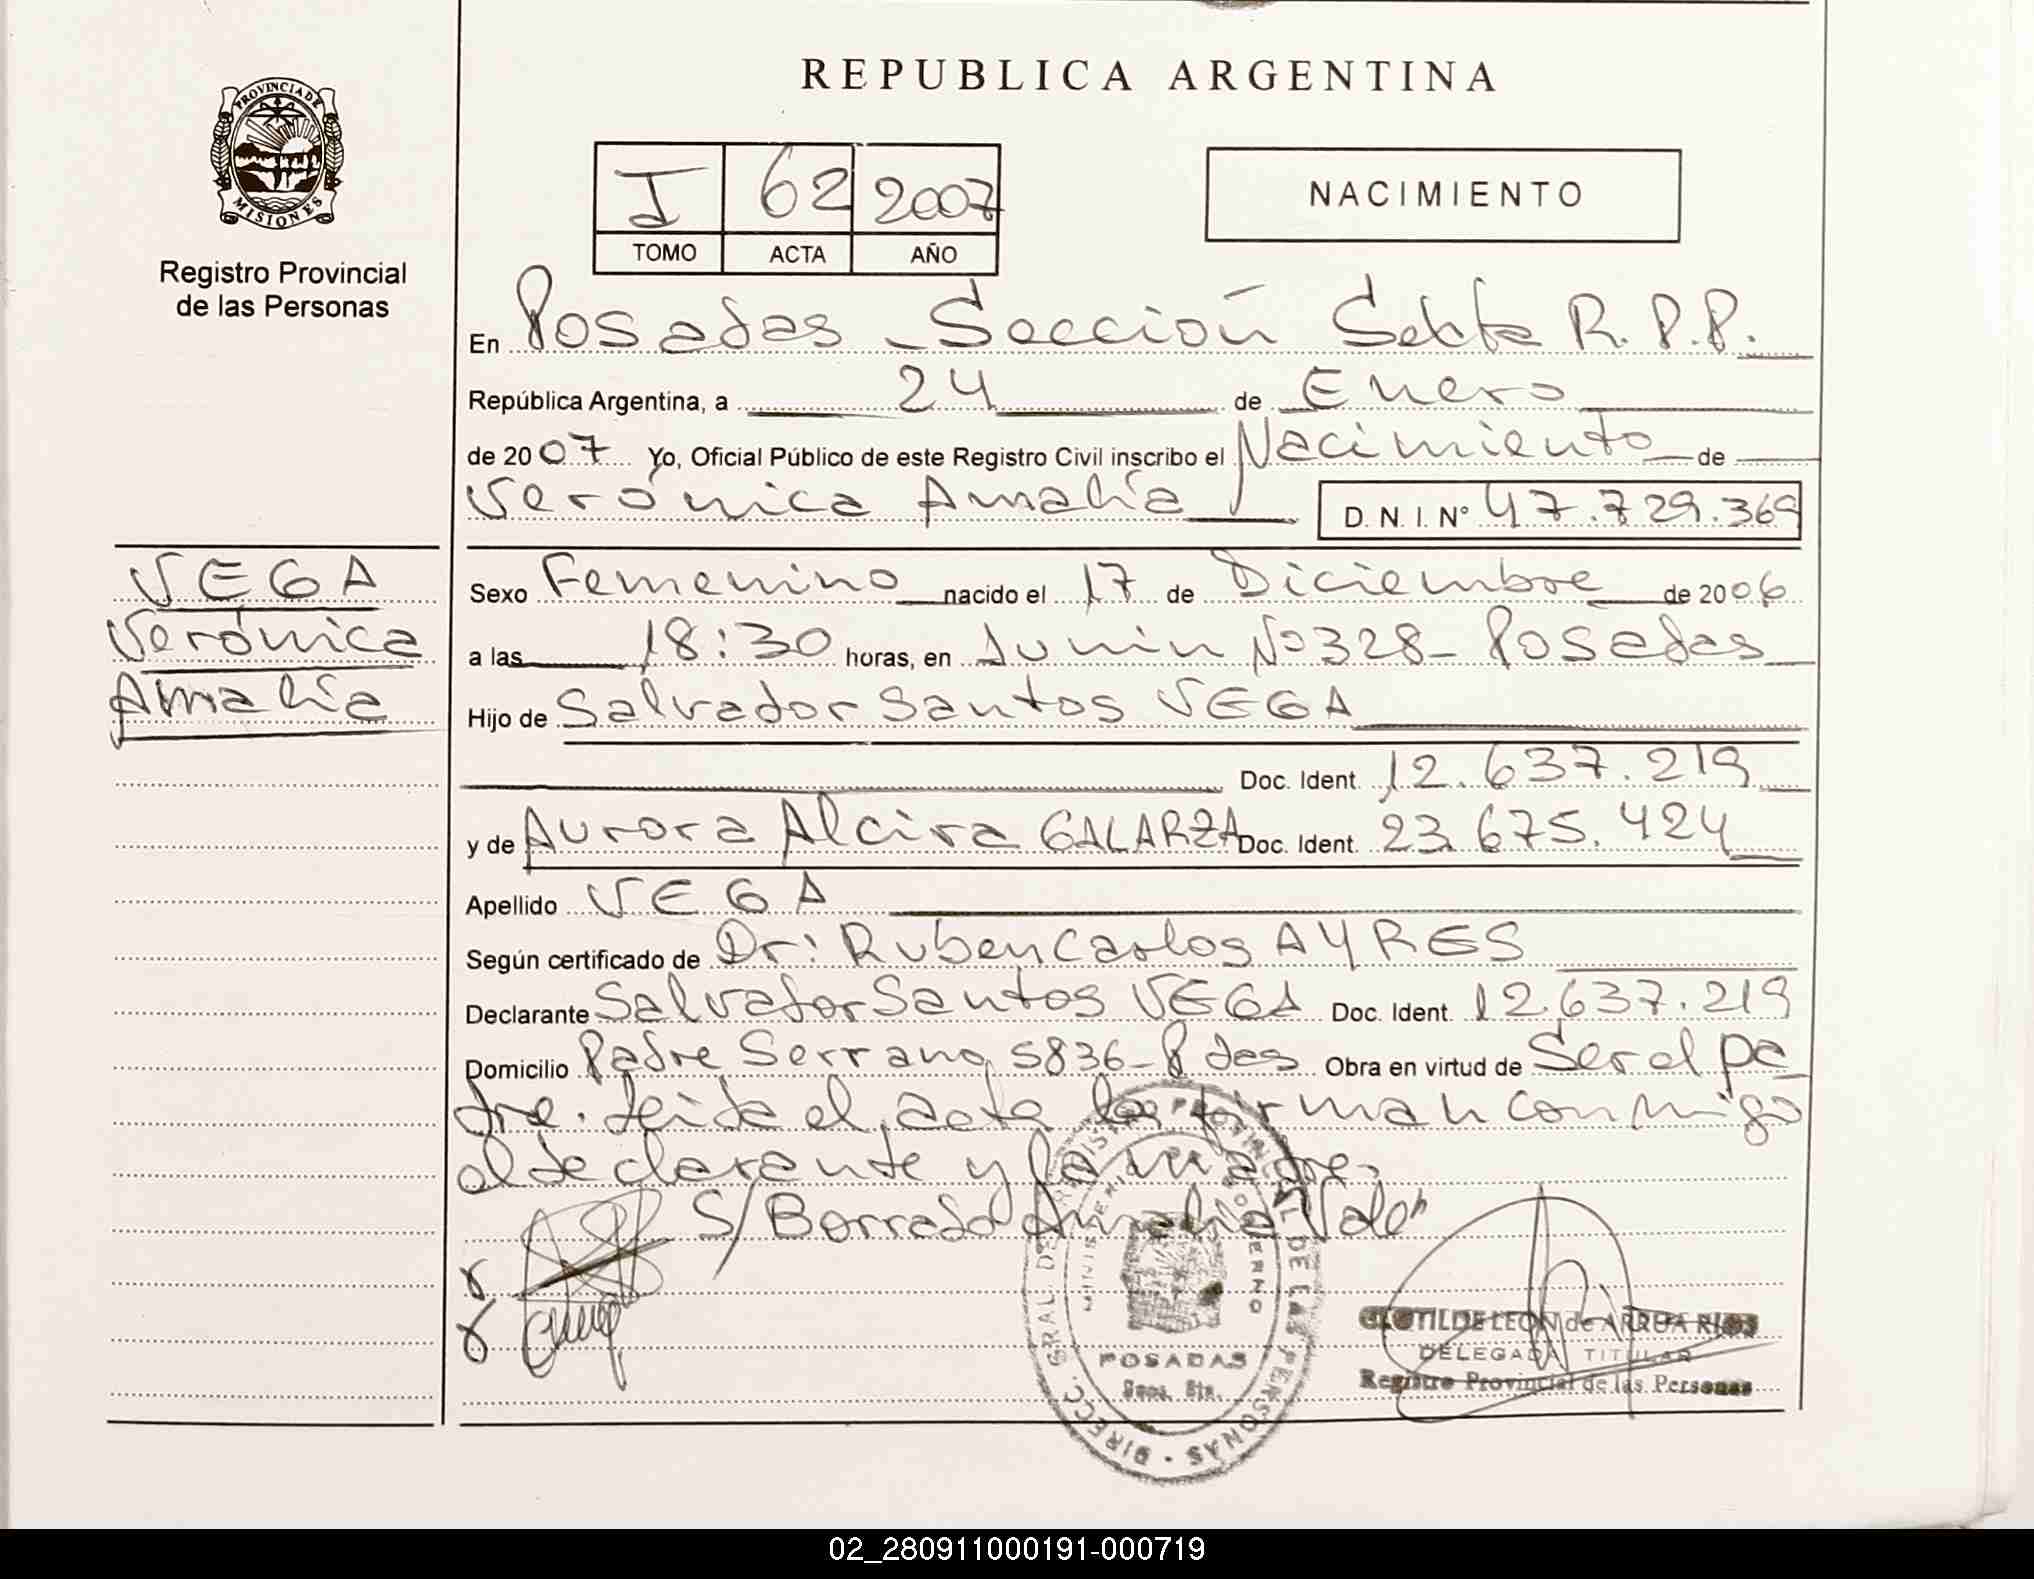 REPUBLICA ARGENTINA
PROVINCIA DE
MISIONES
Registro Provincial
de las Personas
I 62 2007
TOMO ACTA AÑO
NACIMIENTO
En Posadas - Sección Sexta R.P.P.
República Argentina, a 24 de Enero
de 2007 Yo, Oficial Público de este Registro Civil inscribo el Nacimiento de
Verónica Amalía D. N. I. Nº 47.729.369
VEGA
Verónica
Amalía
Sexo Femenino nacido el 17 de Diciembre de 2006
a las 18:30 horas, en Junin Nº 328 - Posadas
Hijo de Salvador Santos VEGA
Doc. Ident. 12.637.219
y de Aurora Alcira GALARZA Doc. Ident. 23.675.424
Apellido VEGA
Según certificado de Dr: Ruben Carlos AYRES
Declarante Salvador Santos VEGA Doc. Ident. 12.637.219
Domicilio Padre Serrano 5836 - Pdas Obra en virtud de Ser el pa
dre. Leida el acta la firman conmigo
el declarante y la madre.
S/Borrado Amalía Vale"
DIRECC. GRAL DE REGISTRO PROVINCIAL DE LAS PERSONAS
MINISTERIO GOBIERNO
POSADAS
Secc. 6ta.
CLOTILDE LEON de ARRUA RIOS
DELEGADA TITULAR
Registro Provincial de las Personas
02_280911000191-000719